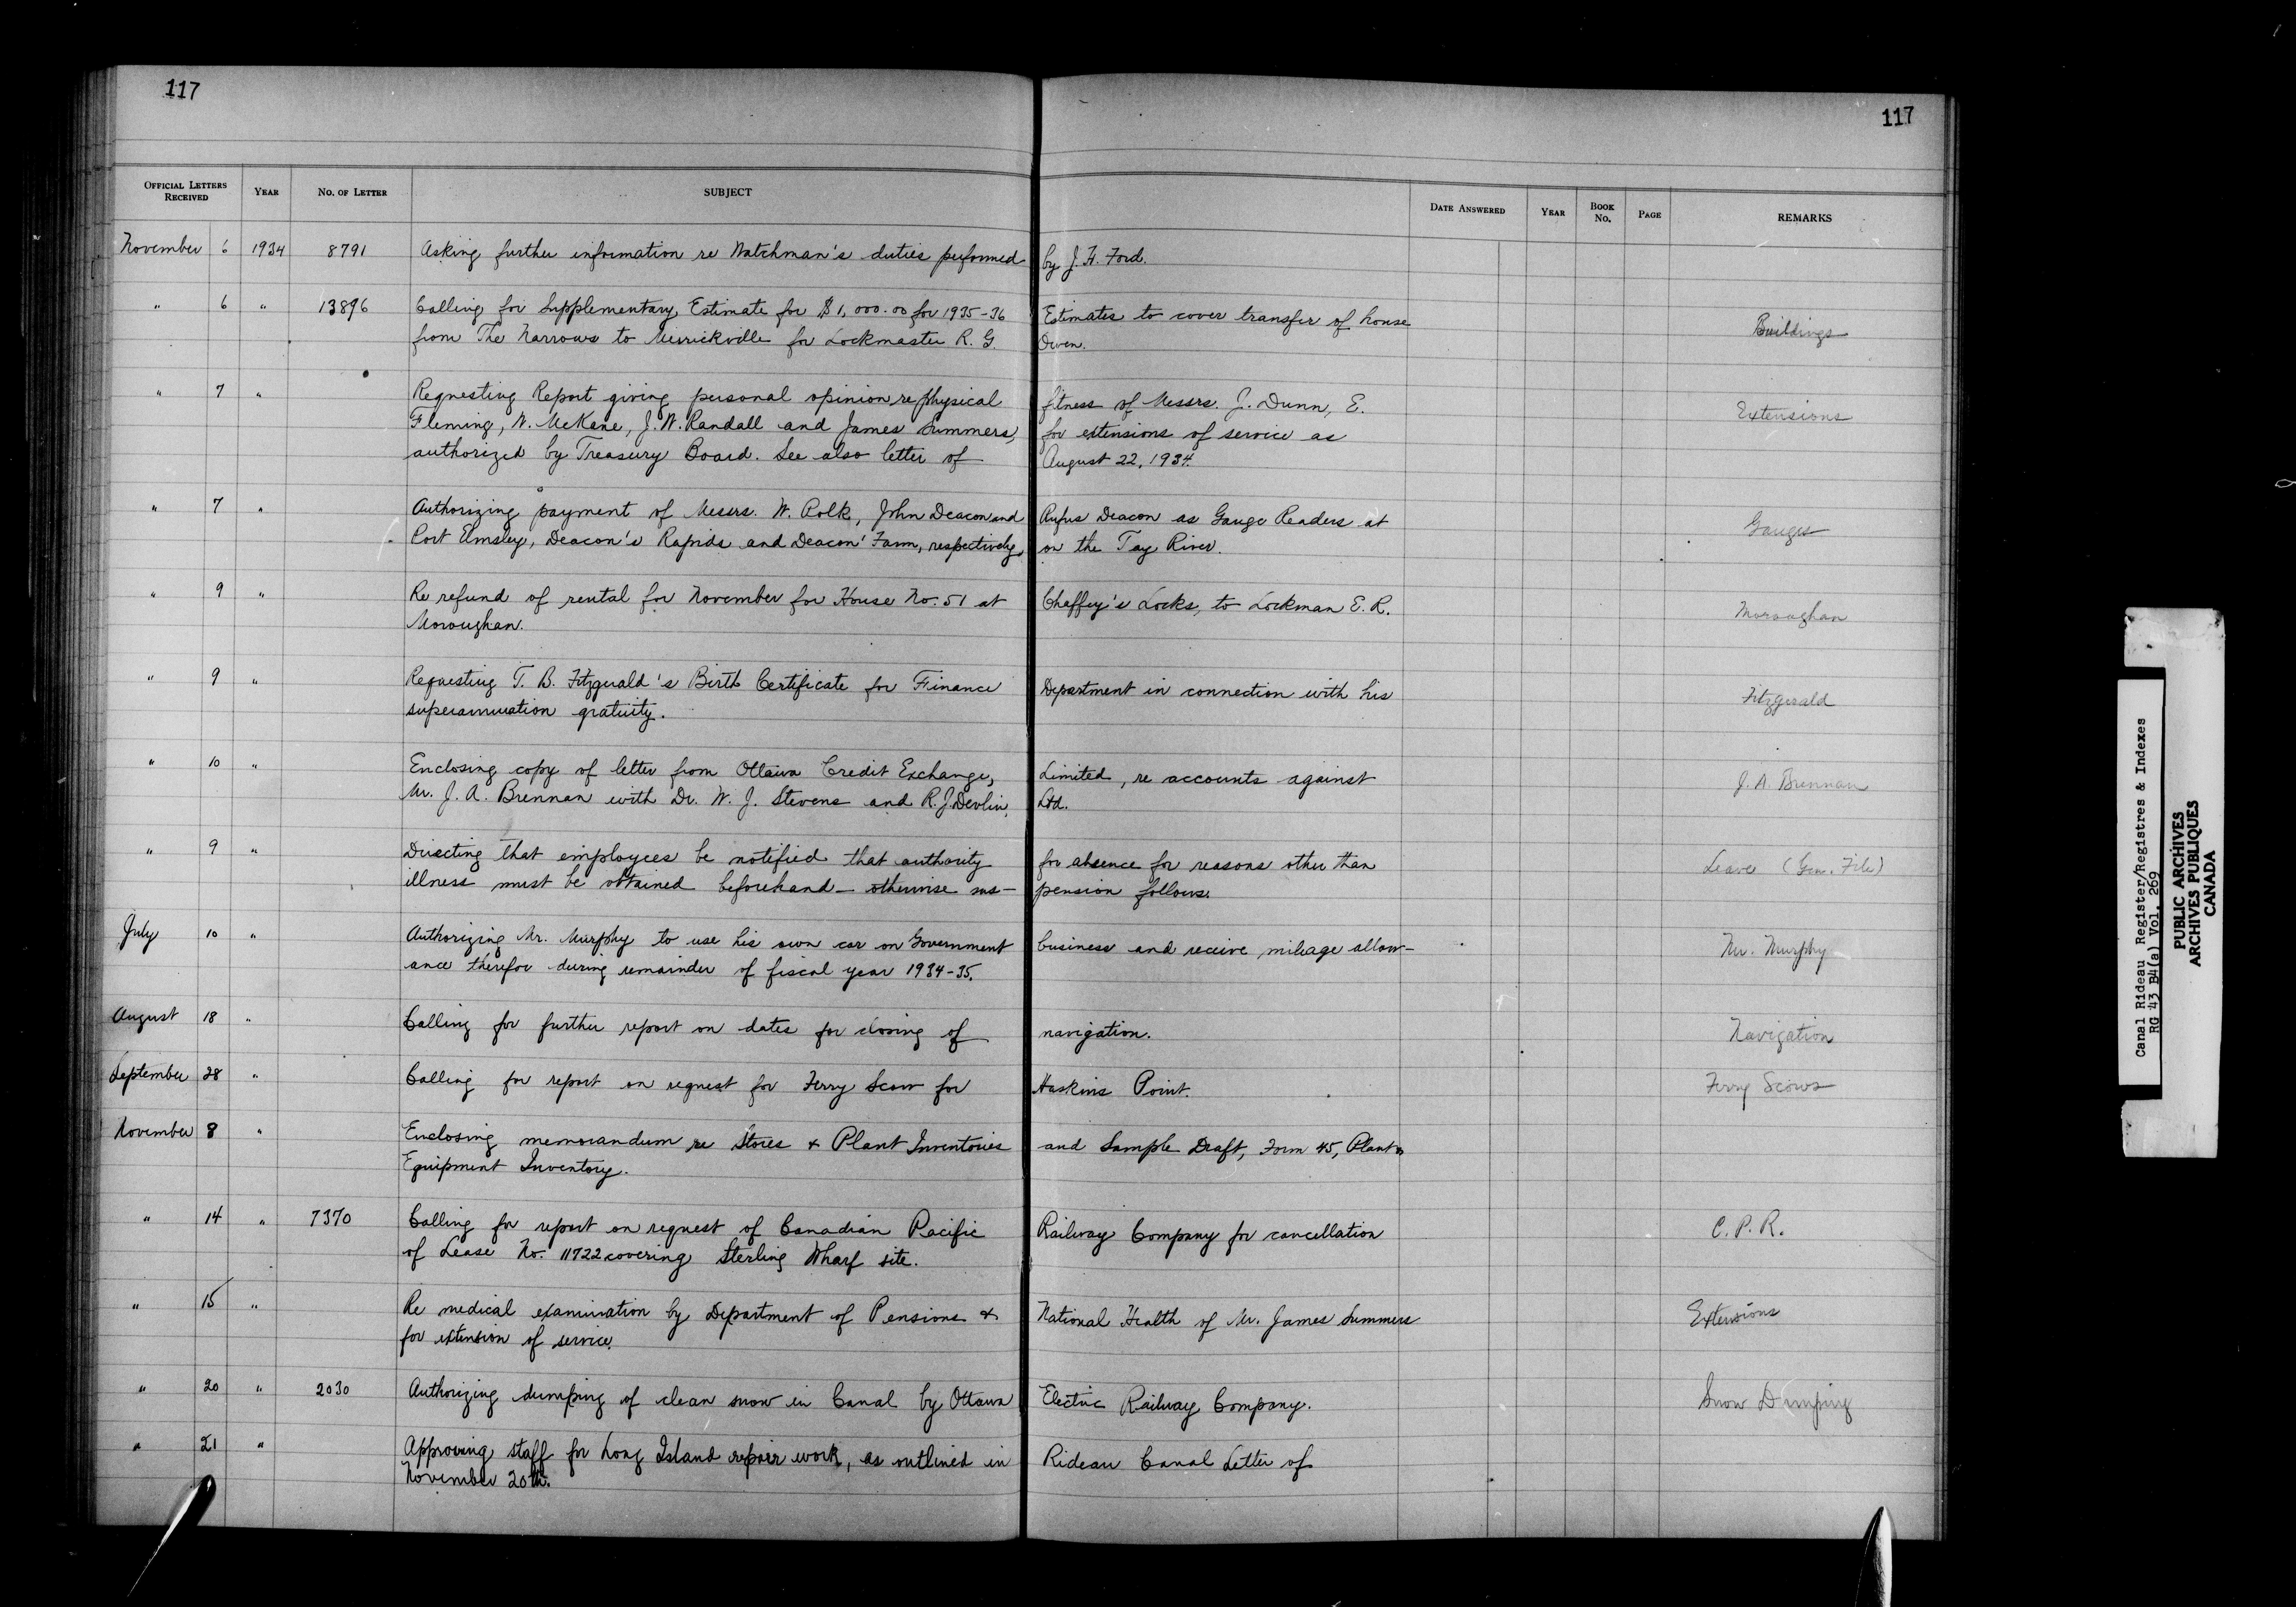 117
117
OFFICIAL LETTERS RECEIVED YEAR NO. OF LETTER SUBJECT DATE ANSWERED YEAR BOOK NO. PAGE REMARKS
November 6 1934 8791 Asking further information re Watchman's duties performed by J. H. Ford.
" 6 " 13896 Calling for Supplementary Estimate for $1,000.00 for 1935-36 Estimates to cover transfer of house Buildings
from The Narrows to Merrickville for Lockmaster R. G. Owen.
" 7 " Requesting Report giving personal opinion re physical fitness of Messrs. J. Dunn, E. Extensions
Fleming, W. McKane, J. W. Randall and James Summers, for extensions of service as
authorized by Treasury Board. See also letter of August 22, 1934.
" 7 " Authorizing payment of Messrs. W. Polk, John Deacon and Rufus Deacon as Gauge Readers at Gauges
Port Elmsley, Deacon's Rapids and Deacon' Farm, respectively, on the Tay River.
" 9 " Re refund of rental for November for House No. 51 at Chaffey's Locks, to Lockman E. R. Moroughan
Moroughan.
" 9 " Requesting T. B. Fitzgerald's Birth Certificate for Finance Department in connection with his Fitzgerald
superannuation gratuity.
" 10 " Enclosing copy of letter from Ottawa Credit Exchange, Limited, re accounts against J. A. Brennan
Mr. J. A. Brennan with Dr. W. J. Stevens and R. J. Devlin, Ltd.
" 9 " Directing that employees be notified that authority for absence for reasons other than Leave (Gen. File)
illness must be obtained beforehand - otherwise sus- pension follows.
July 10 " Authorizing Mr. Murphy to use his own car on Government business and receive mileage allow- Mr. Murphy
ance therefor during remainder of fiscal year 1934-35.
August 18 " Calling for further report on dates for closing of navigation. Navigation
September 28 " Calling for report on request for Ferry Scow for Haskins Point. Ferry Scows
November 8 " Enclosing memorandum re Stores & Plant Inventories and Sample Draft, Form 45, Plant &
Equipment Inventory.
" 14 " 7370 Calling for report on request of Canadian Pacific Railway Company for cancellation C. P. R.
of Lease No. 11722 covering Sterling Wharf site.
" 15 " Re medical examination by Department of Pensions & National Health of Mr. James Summers Extensions
for extension of service.
" 20 " 2030 Authorizing dumping of clean snow in Canal by Ottawa Electric Railway Company. Snow Dumping
" 21 " Approving staff for Long Island repair work, as outlined in Rideau Canal Letter of
November 20th.
Canal Rideau Register/Registres & Indexes
RG 43 B4(a) Vol. 269
PUBLIC ARCHIVES
ARCHIVES PUBLIQUES
CANADA